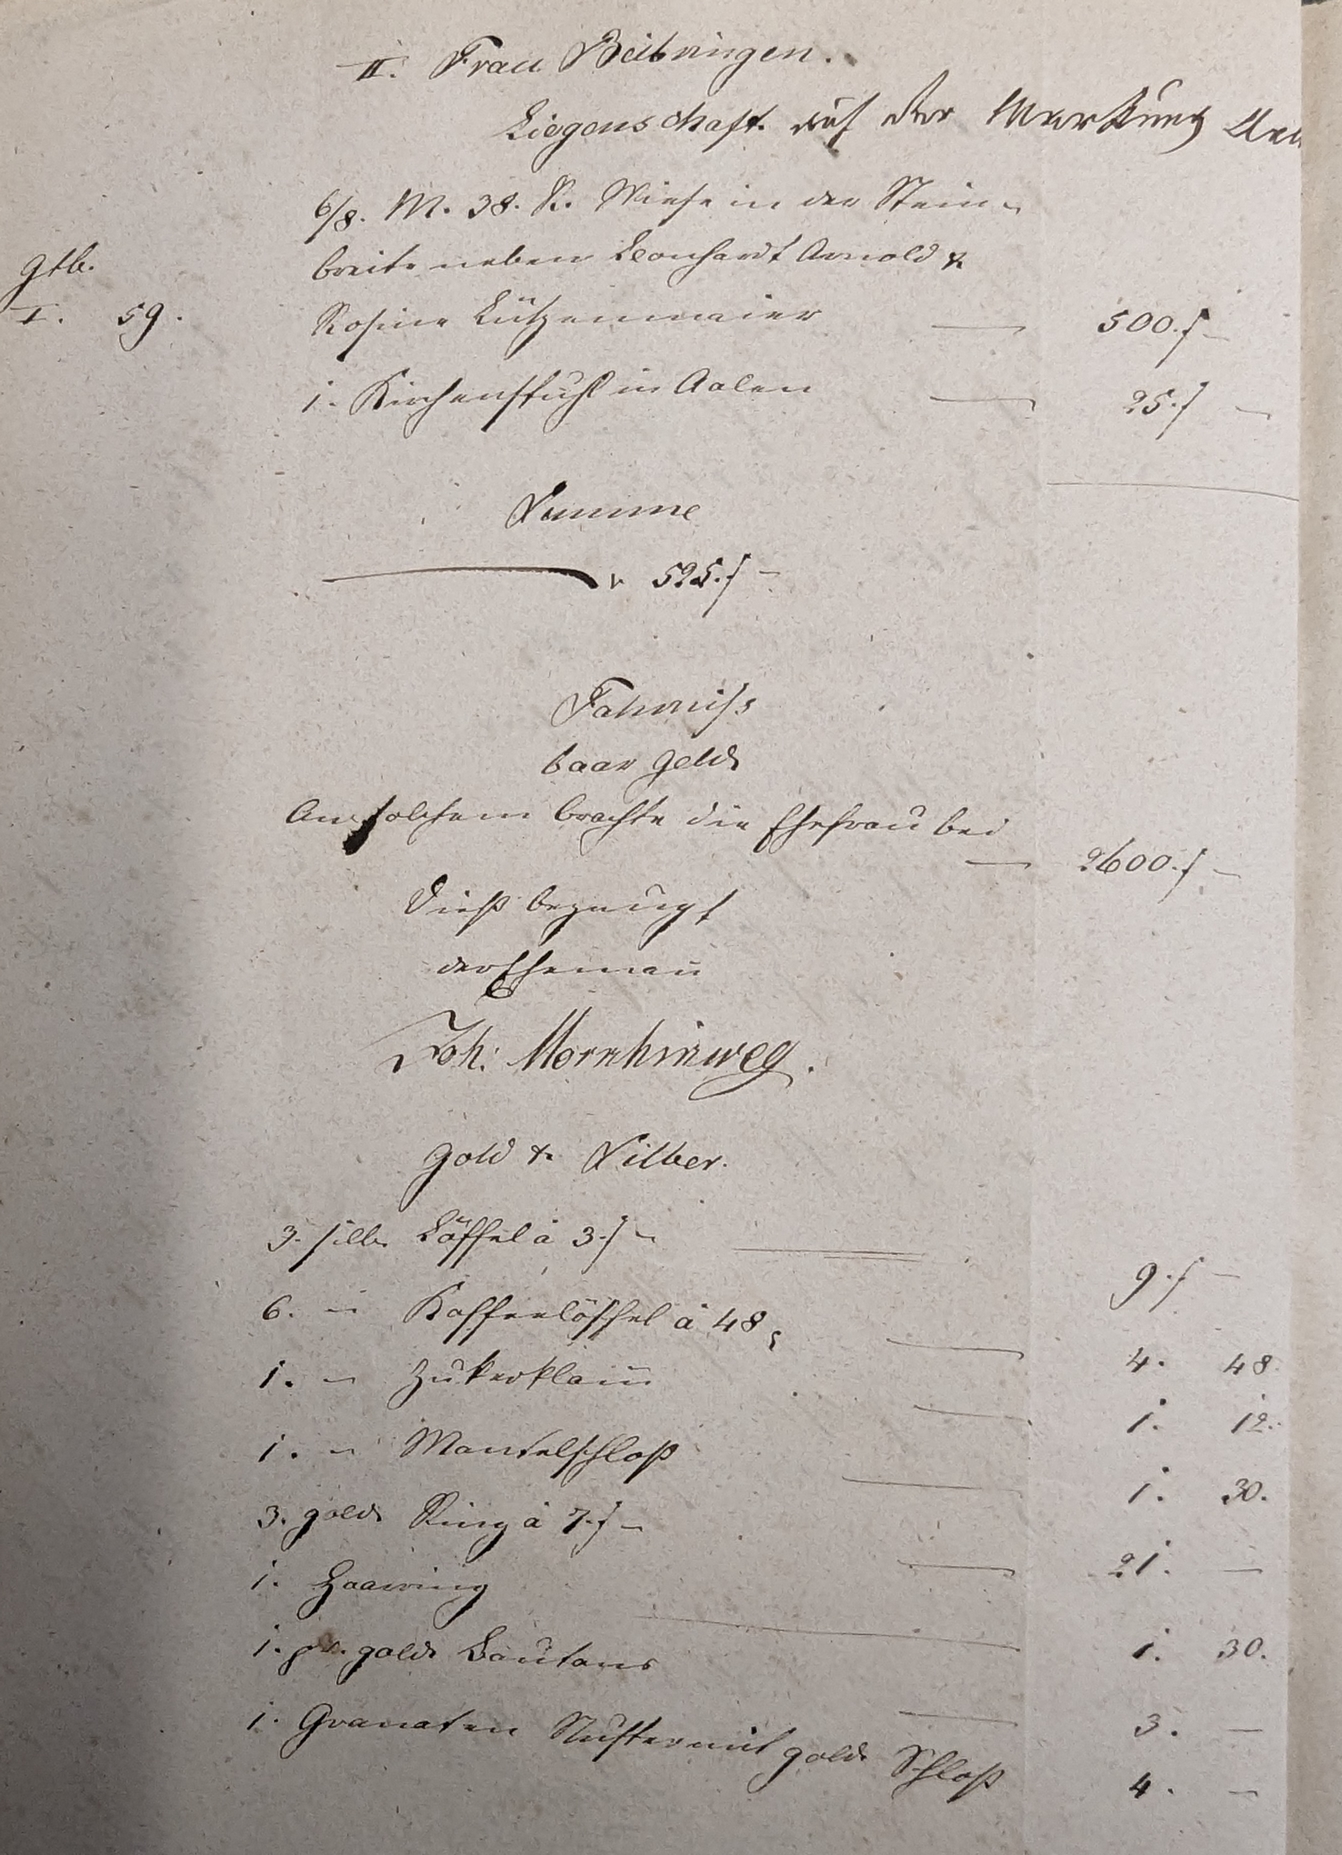 II. Frau Beibringen.
Liegenschaft. auf der Markung
6/8. M. 38. R. Wiese in der Stein-
gtb. breite neben Leonhardt Arnold &
I. 59. Rosine Lützenmaier — 500.f —
1. Kirchenstuhl in Aalen — 25.f —
Summe
525.f —
Fahrniss
baar Geld
An solchem brachte die Ehefrau bei
— 2600.f —
Dieß bezeugt
der Eheman̄
Joh: Mornhinweg.
Gold & Silber.
3. silb. Löffel à 3.f — 9.f —
6. " Kaffeelöffel à 48 — 4. 48.
1. " Zukerklam̄ — 1. 12.
1. " Mantelschloß — 1. 30.
3. gold. Ring à 7.f — 21. —
1. Haarring — 1. 30.
1. pr. gold. Boutons — 3. —
1. Granaten Nuster mit gold. Schloß 4. —